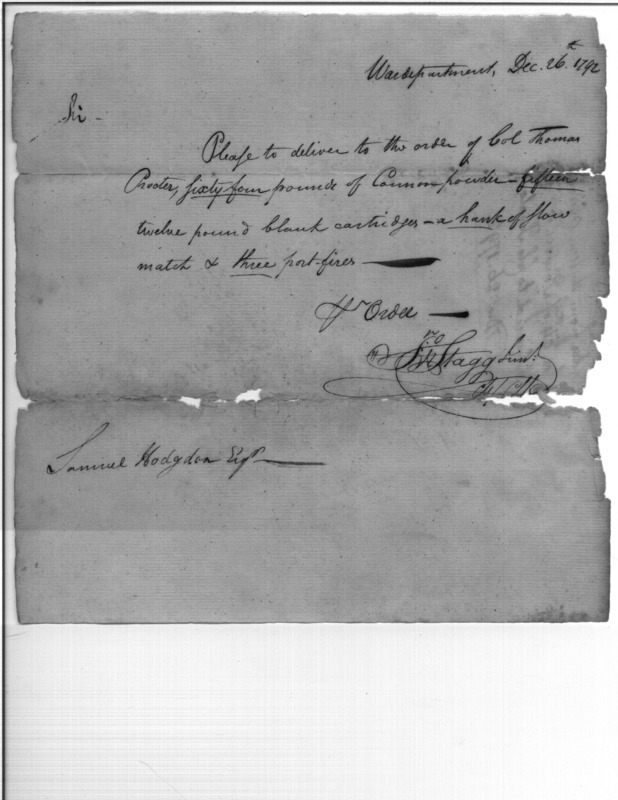 Wardepartment, Dec. 26.th 1792
Sir -
Please to deliver to the order of Col Thomas
Procter, sixty four pounds of Cannon powder - fifteen
twelve pound blank cartridges - a hank of slow
match & three port-fires
Pr Order
Jno Stagg Junr.
Samuel Hodgdon Esqr